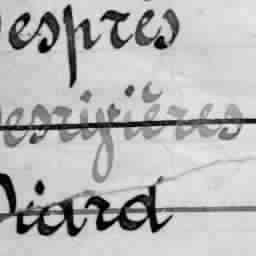 Desprès
Desrivières
Diard